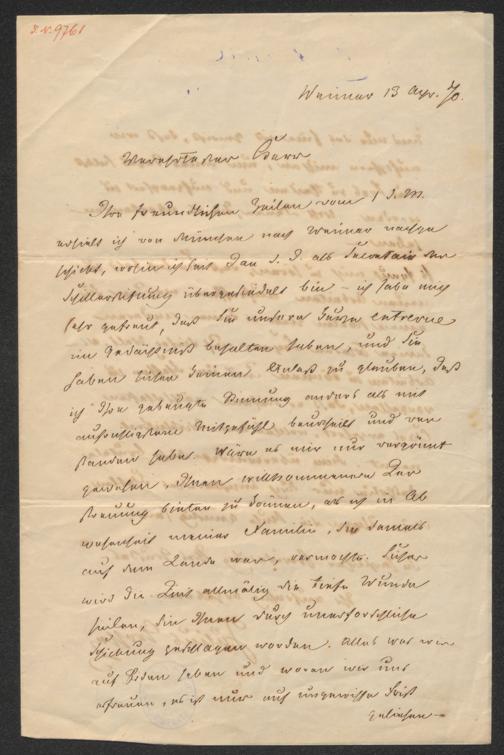 I. N. 9761
Weimar 13 Apr. 70.
Verehrtester Herr
Ihre freundlichen Zeilen vom 1 d. M.
erhielt ich von München nach Weimar nachge
schickt, wohin ich seit Jan d. J. als Secretair der
Schillerstiftung übergesiedelt bin – ich habe mich
sehr gefreut, daß Sie unsere kurze entrevue
im Gedächtniß behalten haben, und Sie
haben sicher keinen Anlaß zu glauben, daß
ich Ihre gebeugte Stimmung anders als mit
aufrichtigstem Mitgefühl beurtheilt und ver
standen habe. Wäre es mir nur vergönnt
gewesen, Ihnen willkommenere Zer
streuung bieten zu können, als ich in Ab
wesenheit meiner Familie, die damals
auf dem Lande war, vermochte. Sicher
wird die Zeit allmälig die tiefe Wunde
heilen, die Ihnen durch unerforschliche
Schickung geschlagen worden. Alles was wir
auf Erden haben und woran wir uns
erfreuen, es ist nur auf ungewisse Frist
geliehen –